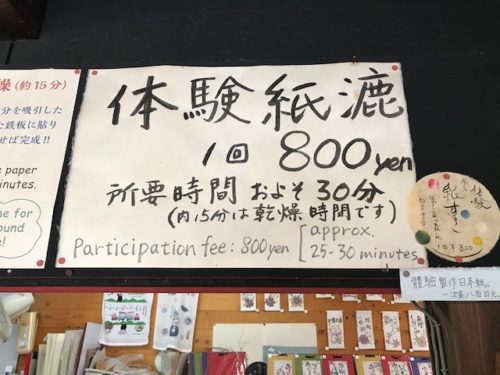 燥(約15分)
分を吸引した
た鉄板に貼り
せば完成!!
e paper
minutes.
me for
ound
e!
体験紙漉
1回 800yen
所要時間 およそ30分
(内15分は乾燥時間です)
Participation fee: 800yen [approx.
25-30 minutes
体験
紙すき
1回¥800
體驗製作日本紙。
一次是八百日元